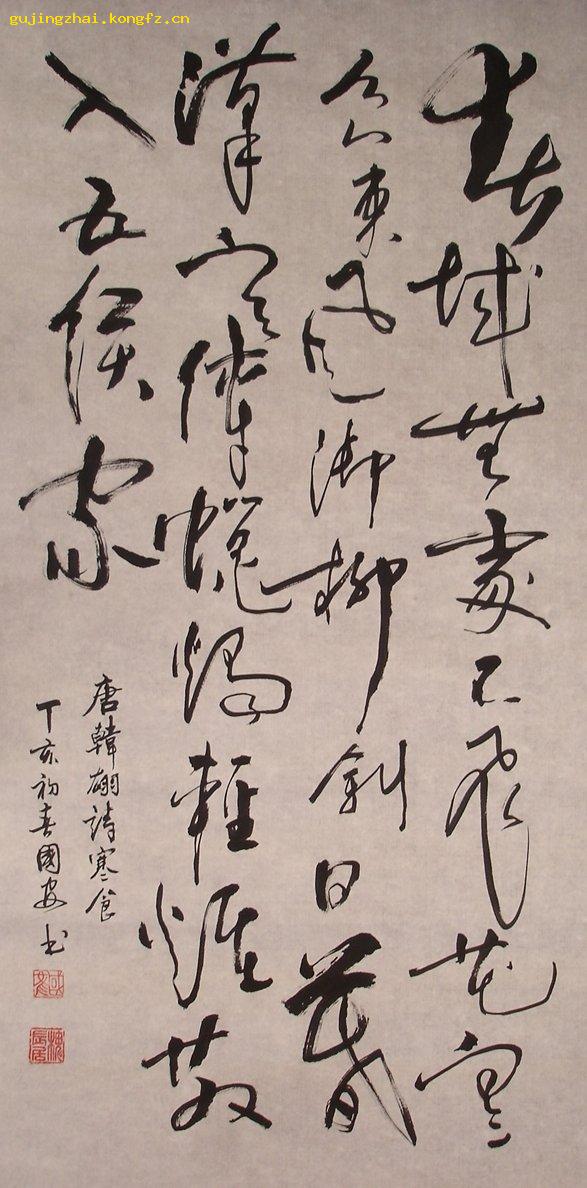 gujingzhai.kongfz.cn
春城無處不飛花寒
食東風御柳斜日暮
漢宮傳蠟燭輕煙散
入五侯家
唐韓翃詩寒食
丁亥初春國安书